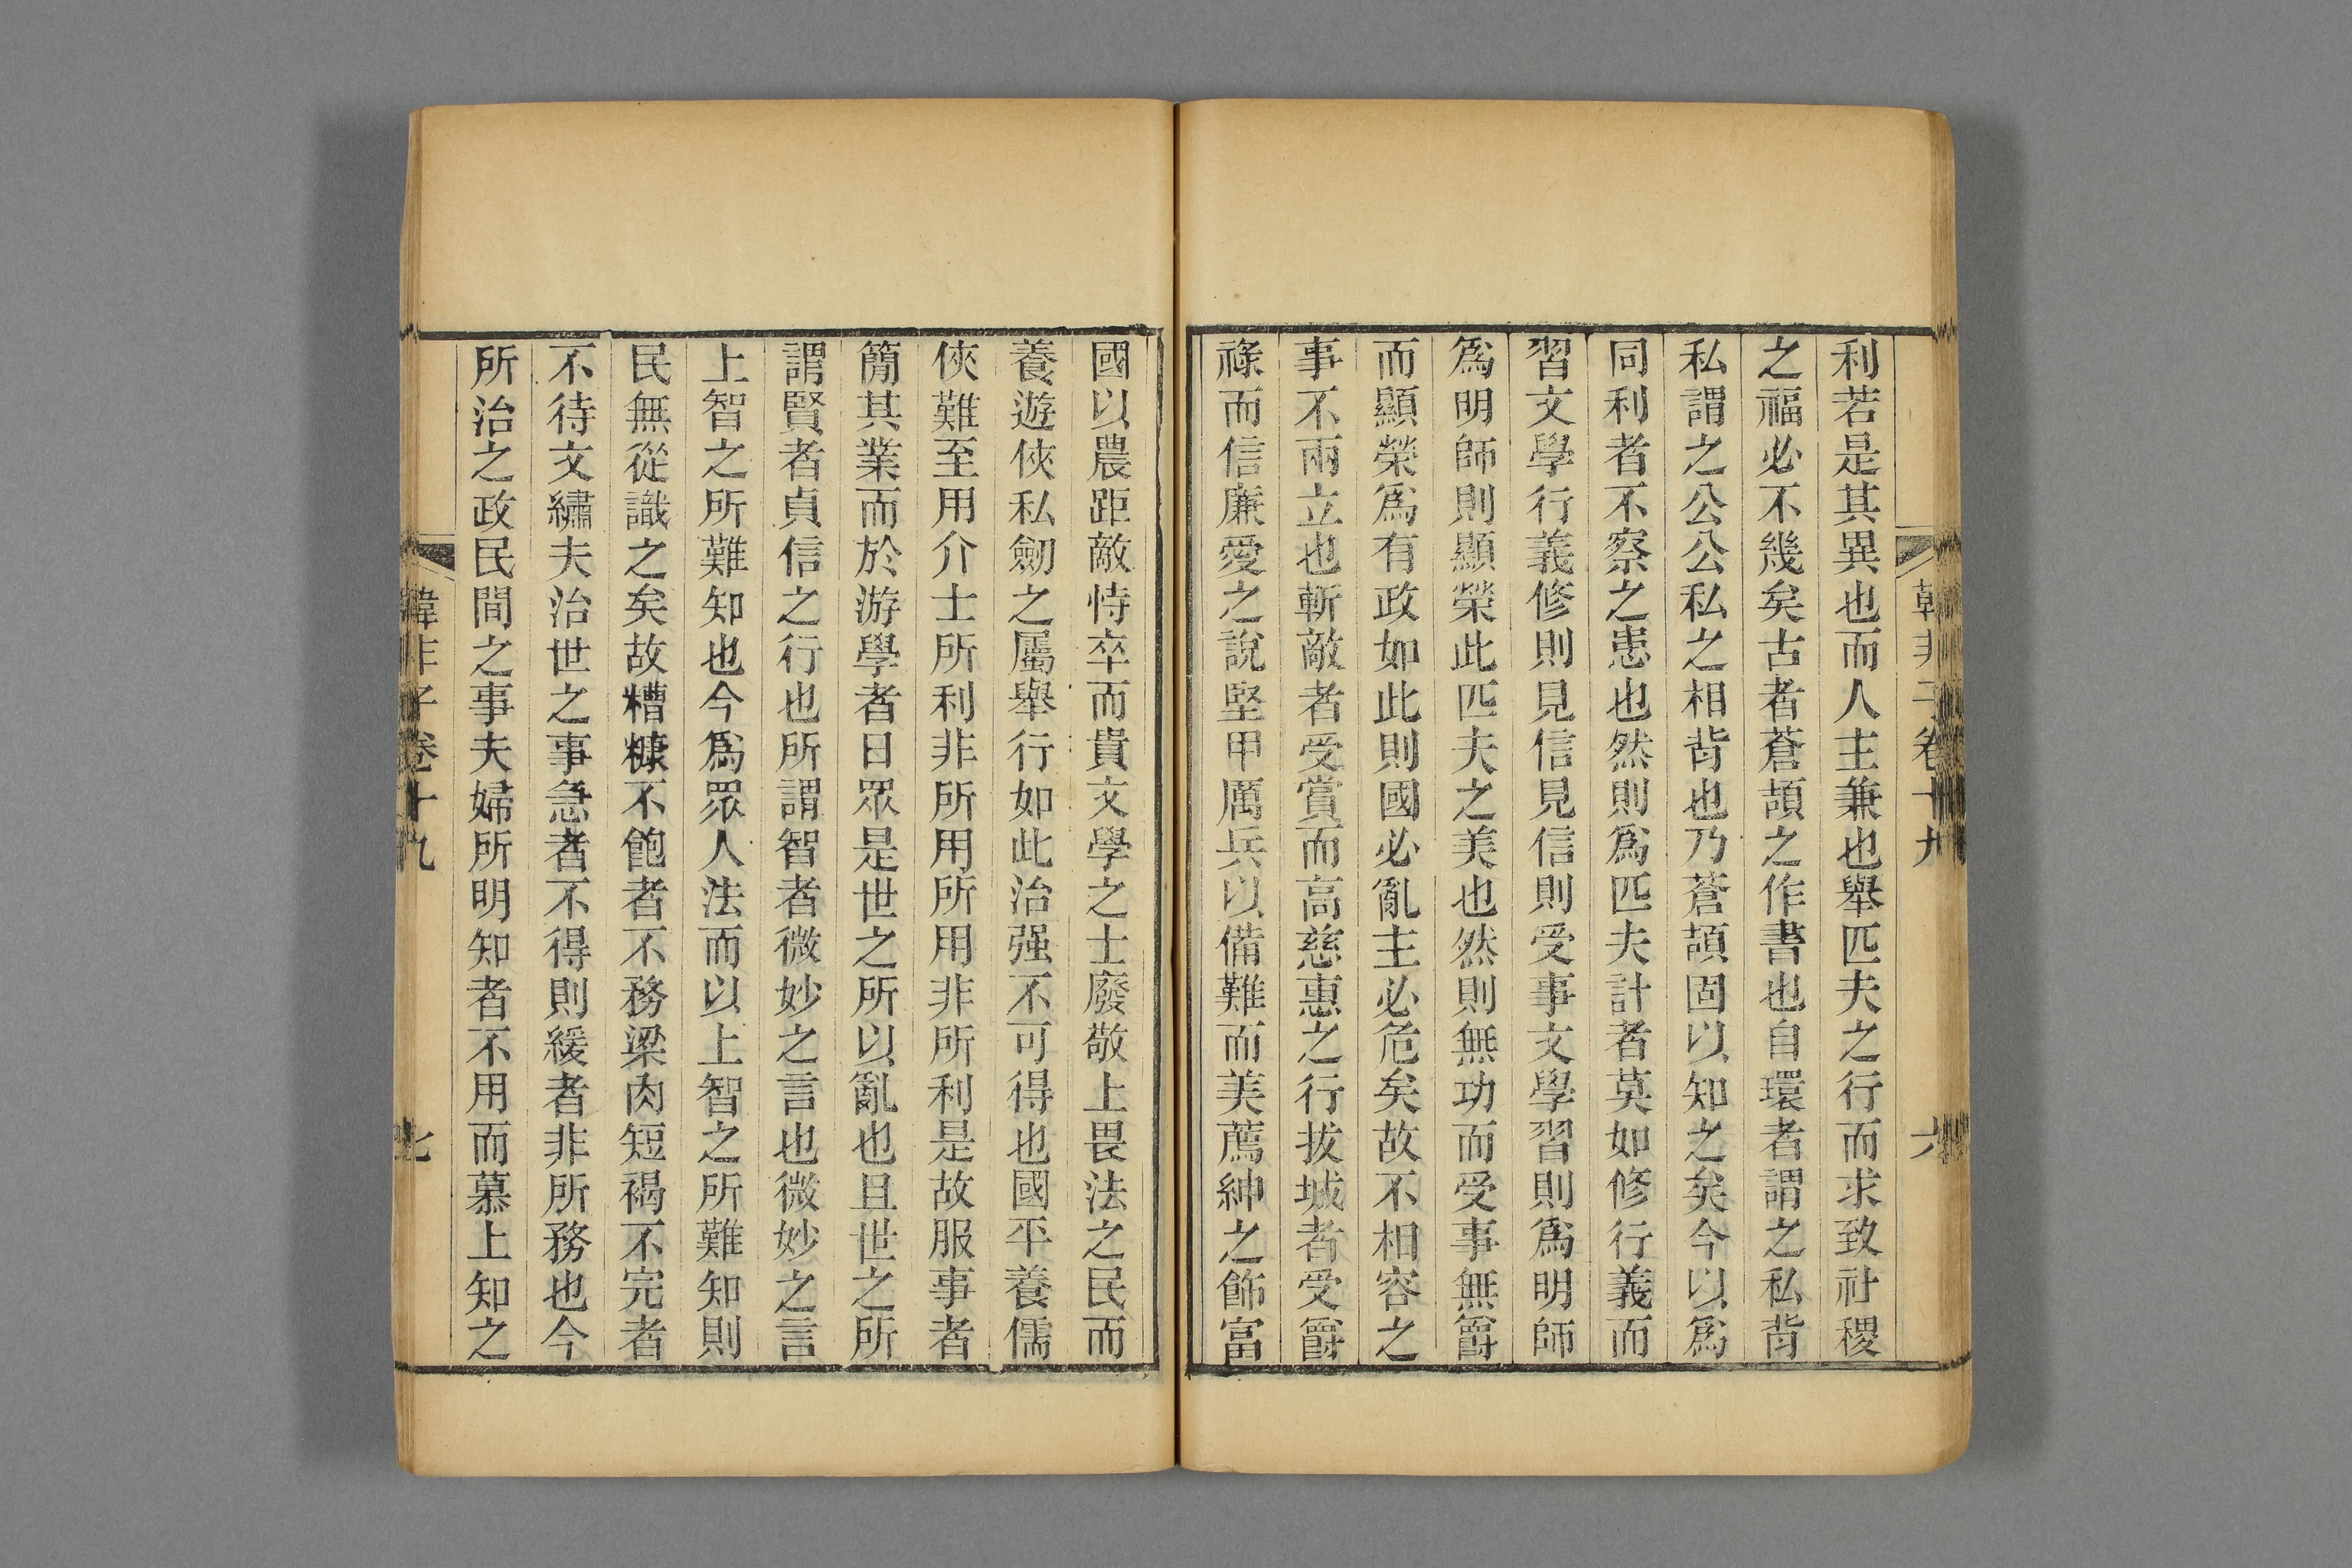 韓非子卷十九
六
利若是其異也而人主兼也舉匹夫之行而求致社稷
之福必不幾矣古者蒼頡之作書也自環者謂之私背
私謂之公公私之相背也乃蒼頡固以知之矣今以爲
同利者不察之患也然則爲匹夫計者莫如修行義而
習文學行義修則見信見信則受事文學習則爲明師
爲明師則顯榮此匹夫之美也然則無功而受事無爵
而顯榮爲有政如此則國必亂主必危矣故不相容之
事不兩立也斬敵者受賞而高慈惠之行拔城者受爵
祿而信廉愛之說堅甲厲兵以備難而美薦紳之飾富
國以農距敵恃卒而貴文學之士廢敬上畏法之民而
養遊俠私劒之屬舉行如此治强不可得也國平養儒
俠難至用介士所利非所用所用非所利是故服事者
簡其業而於游學者日眾是世之所以亂也且世之所
謂賢者貞信之行也所謂智者微妙之言也微妙之言
上智之所難知也今爲眾人法而以上智之所難知則
民無從識之矣故糟糠不飽者不務梁肉短褐不完者
不待文繡夫治世之事急者不得則緩者非所務也今
所治之政民間之事夫婦所明知者不用而慕上知之
韓非子卷十九
七